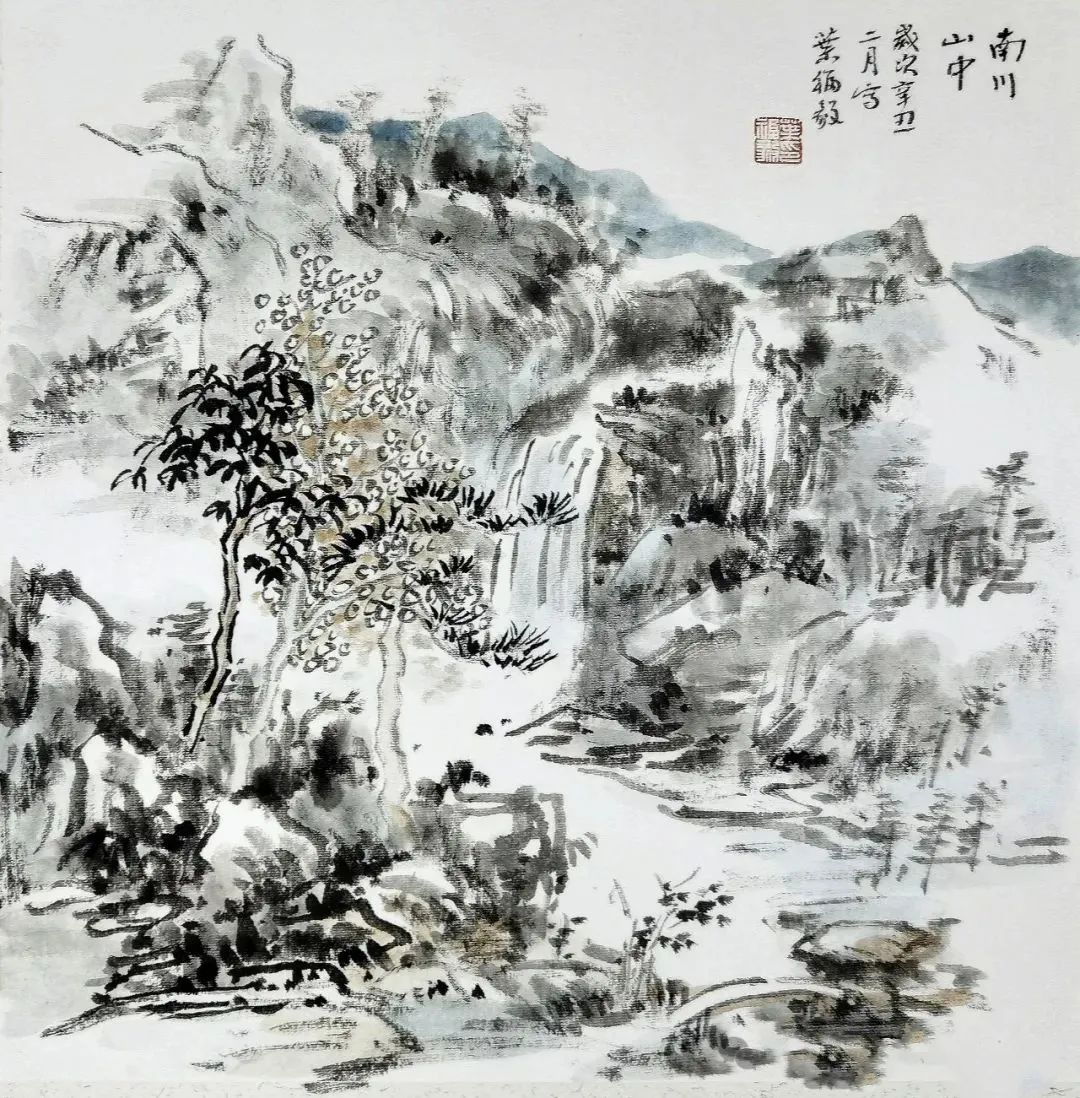 南川
山中
歲次辛丑
二月写
葉福毅